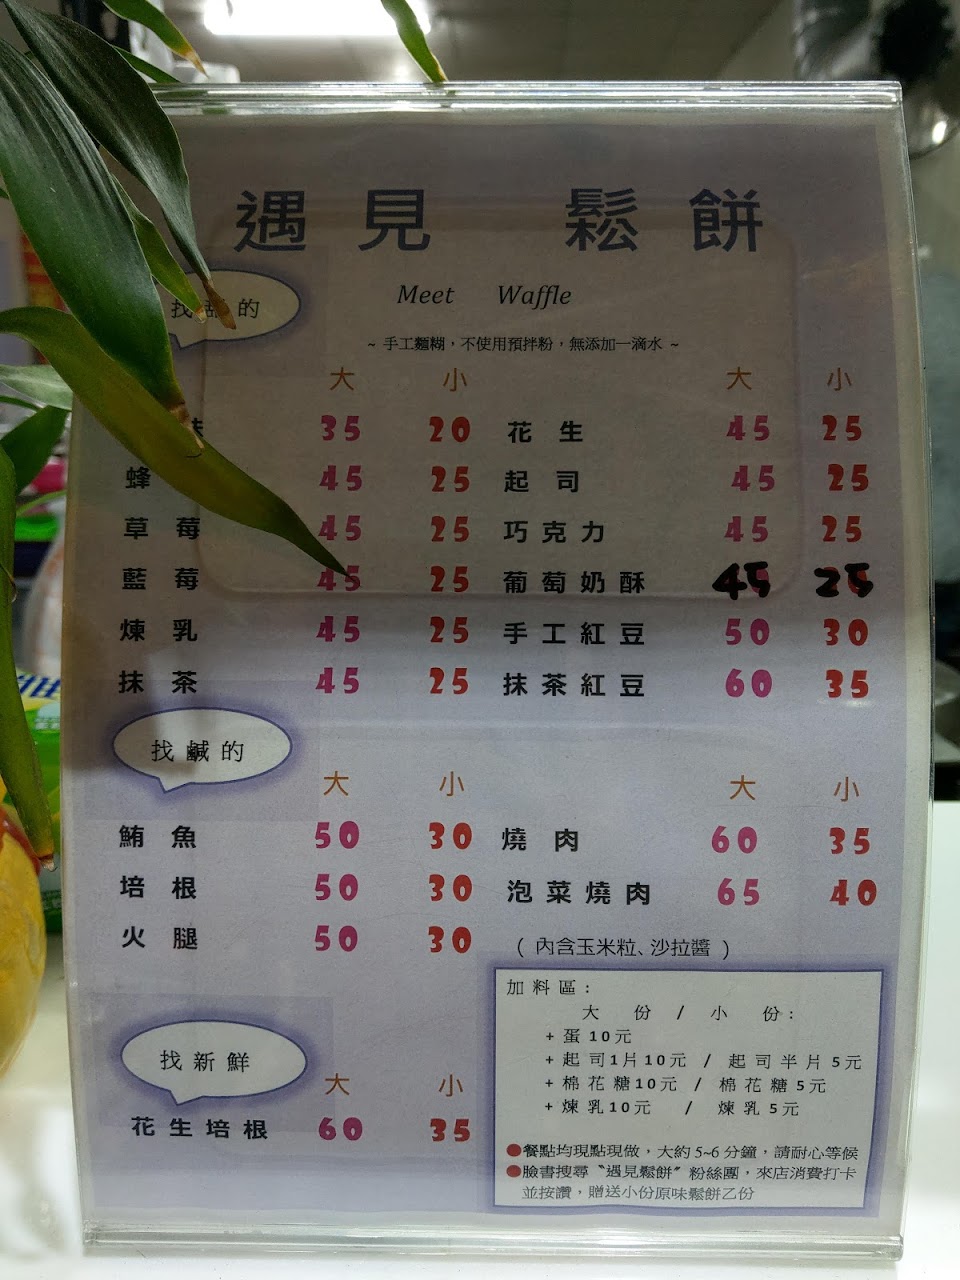 遇見 鬆餅
找 的
Meet Waffle
~ 手工麵糊，不使用預拌粉，無添加一滴水 ~
大 小 大 小
35 20 花生 45 25
蜂 45 25 起司 45 25
草莓 45 25 巧克力 45 25
藍莓 45 25 葡萄奶酥 45 25
煉乳 45 25 手工紅豆 50 30
抹茶 45 25 抹茶紅豆 60 35
找鹹的
大 小 大 小
鮪魚 50 30 燒肉 60 35
培根 50 30 泡菜燒肉 65 40
火腿 50 30 （內含玉米粒、沙拉醬）
找新鮮
大 小
花生培根 60 35
加料區：
大 份 / 小 份：
+ 蛋10元
+ 起司1片10元 / 起司半片5元
+ 棉花糖10元 / 棉花糖5元
+ 煉乳10元 / 煉乳5元
●餐點均現點現做，大約5~6分鐘，請耐心等候
●臉書搜尋〝遇見鬆餅〞粉絲團，來店消費打卡
並按讚，贈送小份原味鬆餅乙份